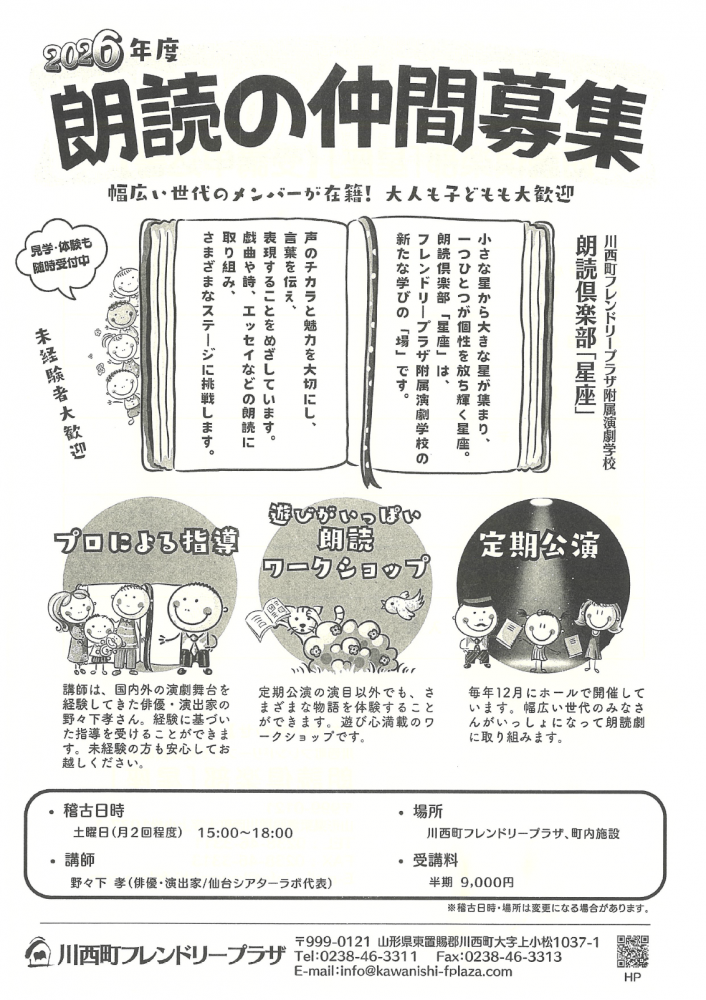 2026年度
朗読の仲間募集
幅広い世代のメンバーが在籍！ 大人も子どもも大歓迎
見学・体験も
随時受付中
未経験者大歓迎
川西町フレンドリープラザ附属演劇学校
朗読倶楽部「星座」
小さな星から大きな星が集まり、
一つひとつが個性を放ち輝く星座。
朗読倶楽部「星座」は、
フレンドリープラザ附属演劇学校の
新たな学びの「場」です。
声のチカラと魅力を大切にし、
言葉を伝え、
表現することをめざしています。
戯曲や詩、エッセイなどの朗読に
取り組み、
さまざまなステージに挑戦します。
プロによる指導
講師は、国内外の演劇舞台を
経験してきた俳優・演出家の
野々下孝さん。経験に基づい
た指導を受けることができま
す。未経験の方も安心してお
越しください。
遊びがいっぱい
朗読
ワークショップ
定期公演の演目以外でも、さ
まざまな物語を体験すること
ができます。遊び心満載のワ
ークショップです。
定期公演
毎年12月にホールで開催して
います。幅広い世代のみなさ
んがいっしょになって朗読劇
に取り組みます。
・稽古日時
土曜日(月2回程度) 15:00〜18:00
・講師
野々下 孝(俳優・演出家/仙台シアターラボ代表)
・場所
川西町フレンドリープラザ、町内施設
・受講料
半期 9,000円
※稽古日時・場所は変更になる場合があります。
川西町フレンドリープラザ
〒999-0121 山形県東置賜郡川西町大字上小松1037-1
Tel:0238-46-3311 Fax:0238-46-3313
E-mail:info@kawanishi-fplaza.com
HP